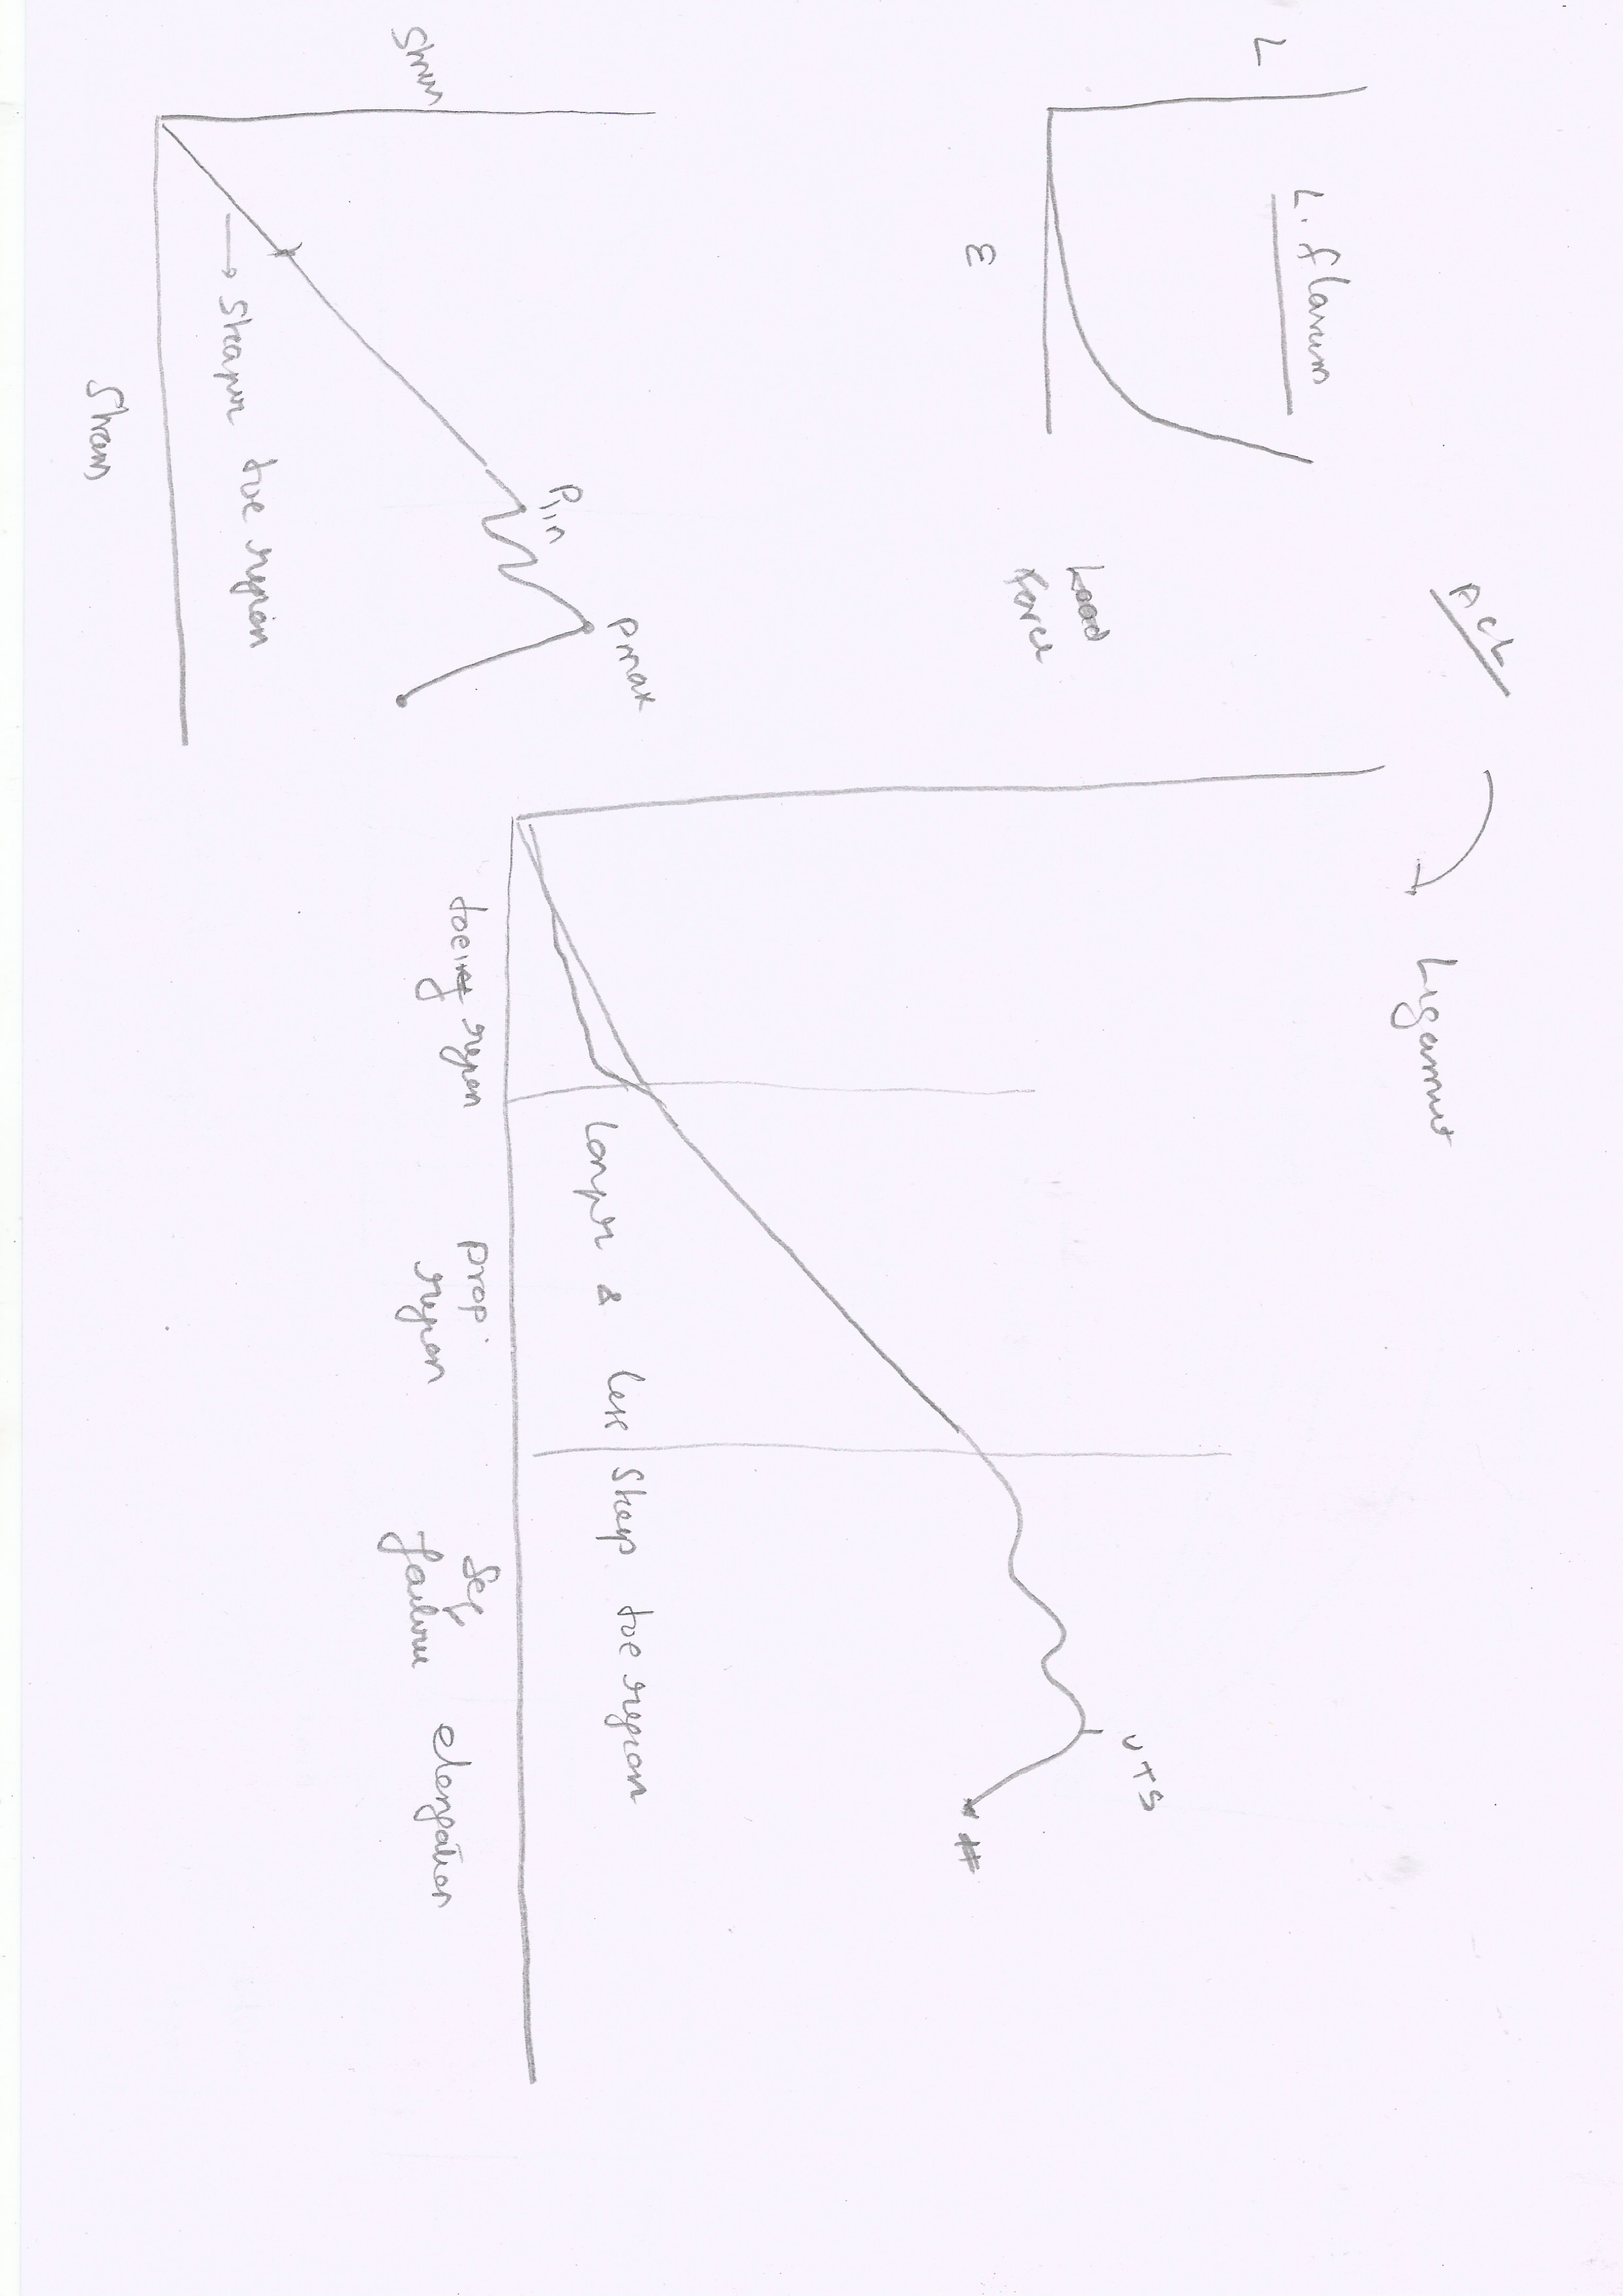 ACL
Ligament
L. flavum
L
ε
Load
Force
UTS
#
Longer & less steep toe region
toeing region
prop.
region
Seq
failure
elongation
Pmax
Plin
Stress
→ Steeper toe region
Strain